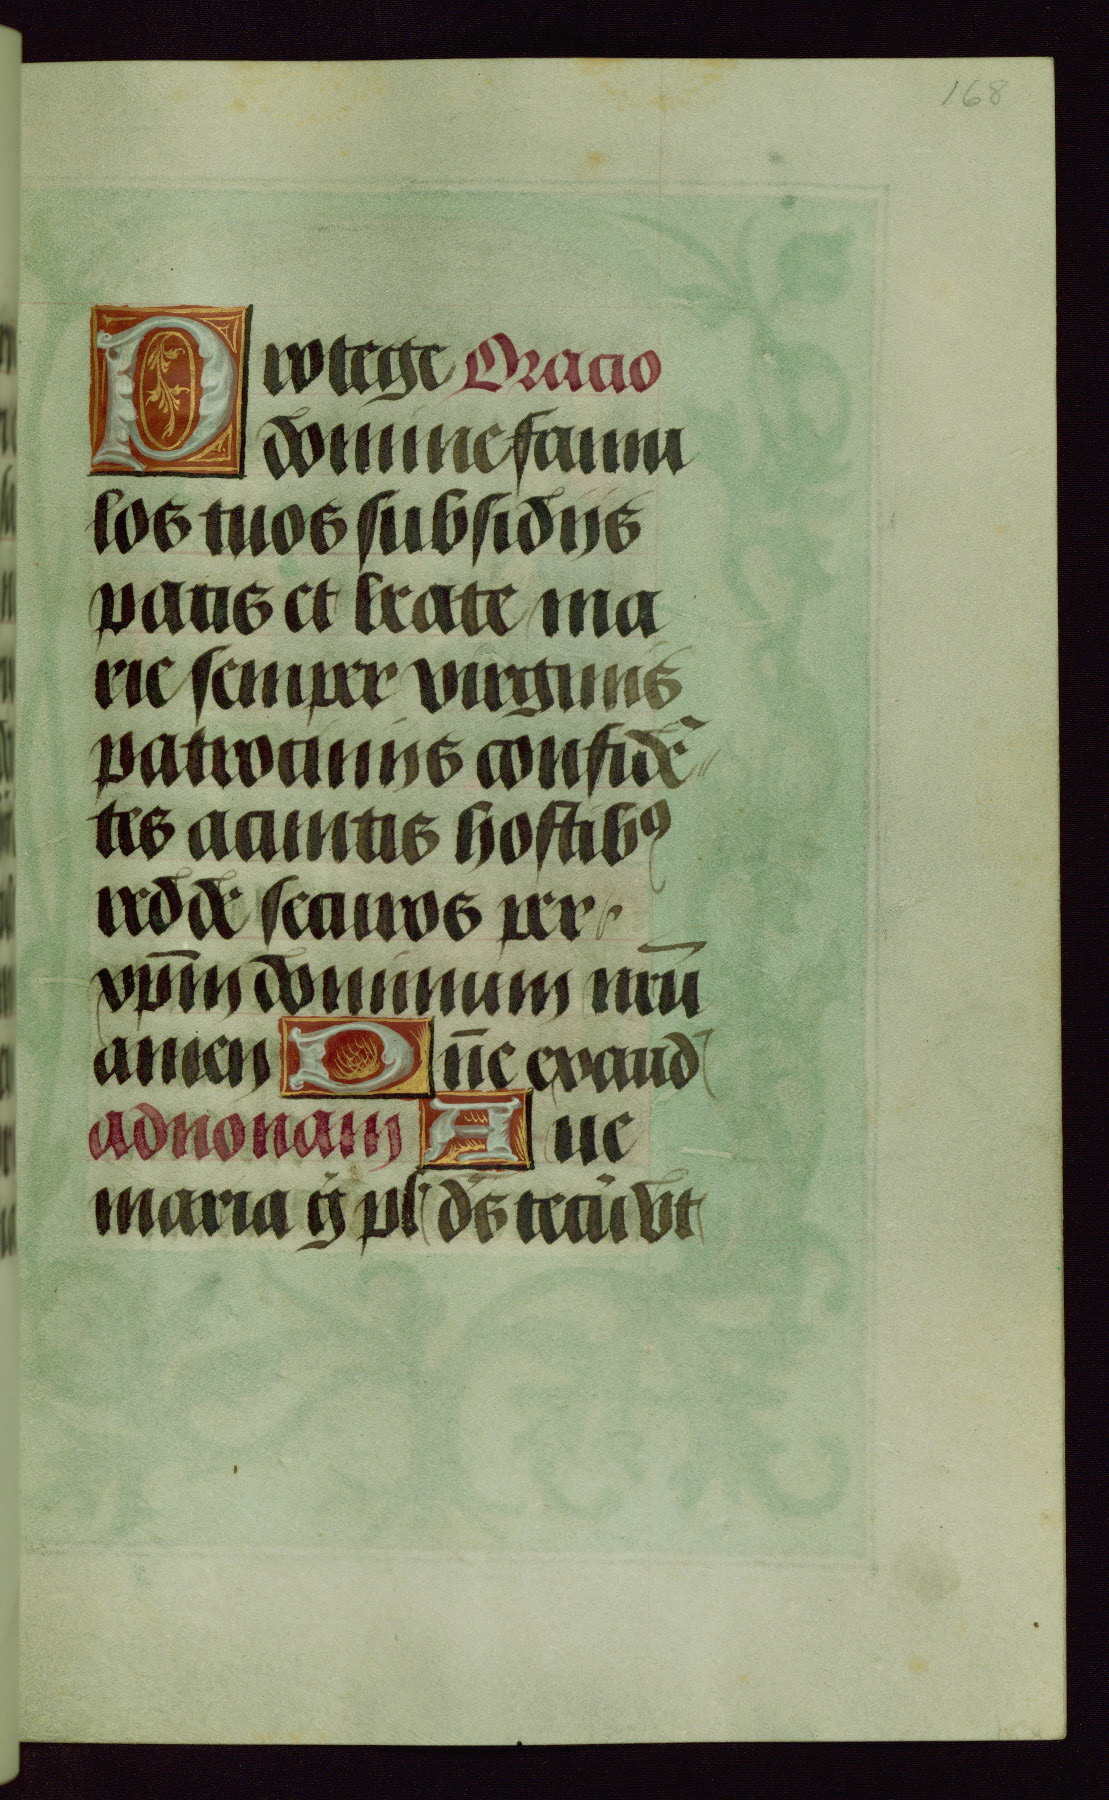 168
Protege Oracio
domine famu
los tuos subsidijs
pacis et beate ma
rie semper virginis
patrocinijs confidē
tes acunctis hostibꝰ
redde securos per
xp̄m dominum nr̄m
amen Dn̄e exaud
adnonam Aue
maria ḡ pl dn̄s tecū vt